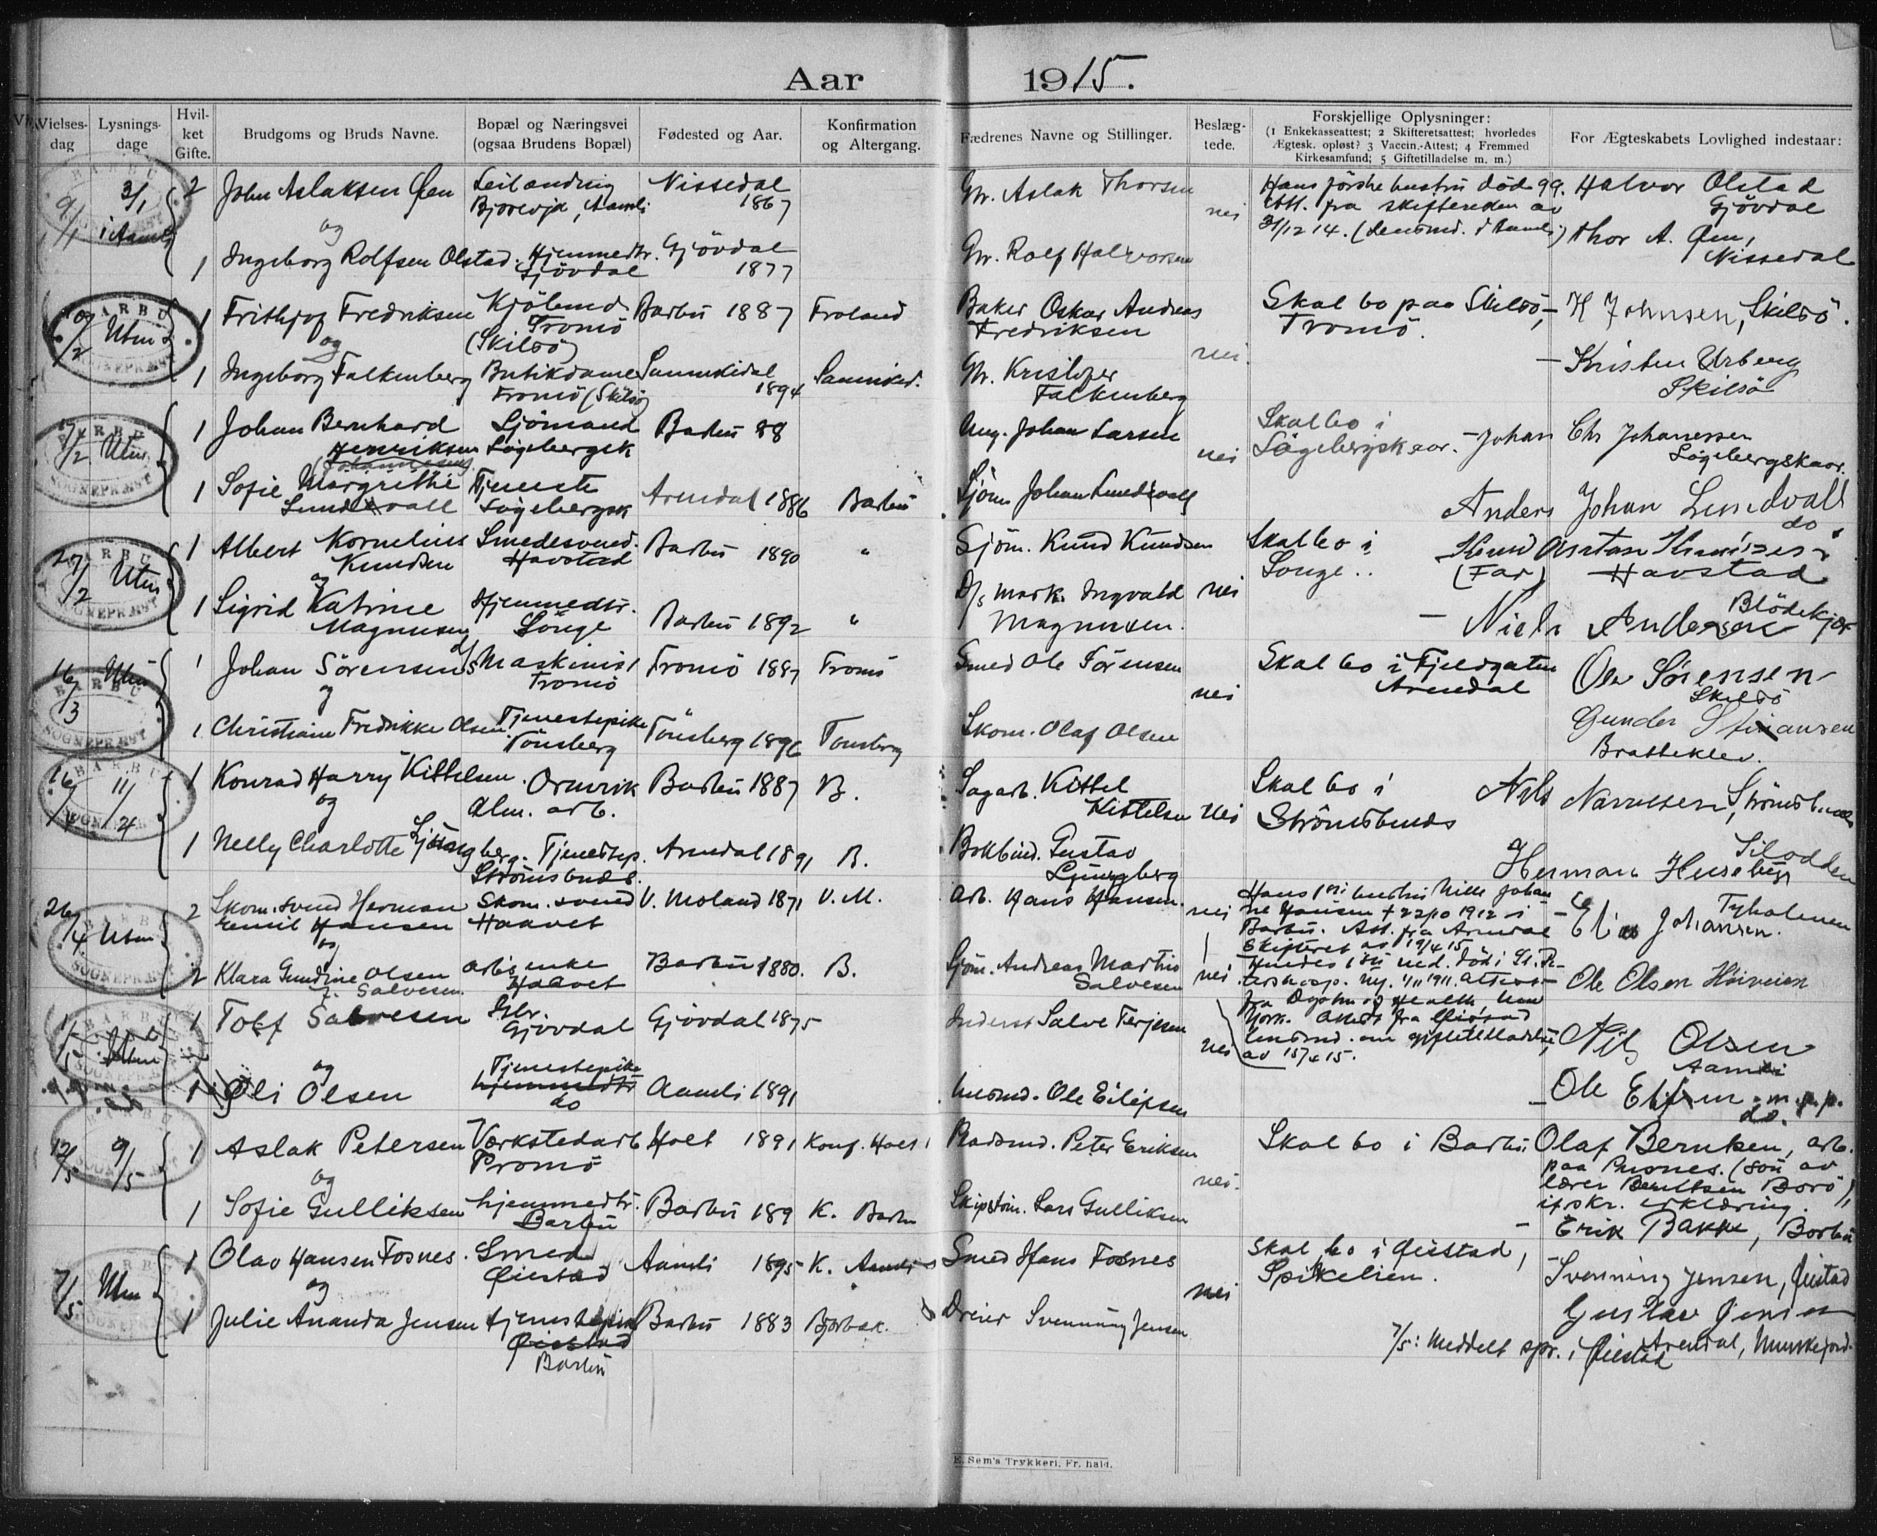 Aar 1915.
Vielses-dag
Lysnings-dage
Hvil-ket Gifte.
Brudgoms og Bruds Navne.
Bopæl og Næringsvei (ogsaa Brudens Bopæl)
Fødested og Aar.
Konfirmation og Altergang.
Fædrenes Navne og Stillinger.
Beslæg-tede.
Forskjellige Oplysninger:
(1 Enkekasseattest; 2 Skifteretsattest; hvorledes
Ægtesk. opløst? 3 Vaccin.-Attest; 4 Fremmed
Kirkesamfund; 5 Giftetilladelse m. m.)
For Ægteskabets Lovlighed indestaar:
BARBU SOGNEPRÆST
9/1 3/1 i Aamli 2 John Aslaksen Øen Nissedal 1867 Gbr. Aslak Thorsen nei Hans förste hustru död 99. Halvor Olstad
Att. fra skifteretten av Gjövdal
31/12 14. (lensmd. i Aamli) Thor A. Øen,
og
1 Ingeborg Rolfsen Olstad. Hjemmedtr. Gjövdal Gjövdal 1877 Gbr. Rolf Halvorsen Nissedal
10/2 Utm 1 Frithjof Fredriksen Kjöbmd Tromö (Skilsö) Barbu 1887 Froland Baker Oskar Andreas Fredriksen nei Skal bo paa Skilsö, Tromö. H Johnsen, Skilsö.
og
1 Ingeborg Falkenberg Butikdame Tromö (Skilsö) Sannikedal 1894 Sanniked. Gbr. Kristofer Falkenberg Kristen Urberg Skilsö
17/2 Utm. 1 Johan Bernhard Henriksen (Johannesen) Sjömand Lögebergsk Barbu 88 Ung. Johan Larsen nei Skal bo i Lögebergskaar. - Johan Chr Johanessen Lögebergskaar.
1 Sofie Margrithe Lundvall Tjeneste Lögebergsk Arendal 1886 Barbu Sjöm Johan Lundvall Anders Johan Lundvall do
27/2 Utm 1 Albert Kornelius Knudsen Smedesvend. Havstad Barbu 1890 " Sjöm. Knud Knudsen nei Skal bo i Songe.. Knud Anton Knudsen (Far) Havstad
og
1 Sigrid Katrine Magnusen Hjemmedtr. Songe Barbu 1892 " D/s mask. Ingvald Magnusen. - Niels Andersen Blödekjær
16/3 Utm 1 Johan Sörensen D/s Maskinist Tromö Tromö 1887 Tromö Smed Ole Sörensen nei Skal bo i Fjeldgaten Arendal Ole Sörensen Skilsö
og
1 Christiane Fredrikke Olsen. Tjenestepike Tönsberg Tönsberg 1896 Tonsberg Skom. Olaf Olsen Gunder Stiansen Bratteklev.
16/4 11/4 1 Konrad Harry Kittelsen. Ormvik Alm. arb. Barbu 1887 B. Sagarb. Kittel Kittelsen nei Skal bo i Strömsbunds Nils Strömsbunds
og
1 Nelly Charlotte Ljungberg. Tjenestep. Strömsbuds. Arendal 1891 B. Bokbind. Gustav Ljungberg Herman Huseby Tilodden
26/4 Utm 2 Skom. svend Herman Emil Hansen Skom. svend Haavet V. Moland 1871 V. M. Arb. Hans Hansen. nei Hans 1ste hustru Nille Johan-
ne Hansen † 22/10 1912 i
Barbu. Att. fra Arendal
Skifteret av 19/4 15
Johansen. Tyholmen
og
2 Klara Gundine Olsen f. Salvesen arb. enke Haavet Barbu 1880. B. Sjöm. Andreas Martin Salvesen nei Hendes 1ste md. död i
1/11 1911. Attest
Ole Olsen
1/5 Utm 1 Tolf Salvesen Gbr. Gjövdal Gjövdal 1875 Inderst Salve Terjesen nei
York.
lensmd. om giftetilladelse
av 15/4 15.
Nils Olsen Aamli
og
1 Oli Olsen Tjenestepike hjemmedtr do Aamli 1891 Ole Eilifsen - Ole m.p.p. do.
12/5 9/5 1 Aslak Petersen Værkstedarb Tromö Holt 1891 Konf. Holt Peter Eriksen nei. Skal bo i Barbu Olaf Berntsen, arb.
paa (sön av
lærer Berntsen Borö),
if skr. erklæring.
og
1 Sofie Gulliksen hjemmedtr. Barbu Barbu 189 K. Barbu Skipstöm. Lars Gulliksen - Erik Bakke, Barbu
7/5 Utm 1 Olav Hansen Fosnes. Smed Øiestad Aamli 1895 K. Aamli Smed Hans Fosnes nei Skal bo i Øiestad, Spikelien. - Svenning Jensen, Øiestad
og
1 Julie Ananda Jensen tjenstepike Øiestad Barbu Barbu 1883 Bjorbæk. Dreier Svenning Jensen Gustav Jensen
7/5: Meddelt spr. i Øiestad Arendal,
E. Sem's Trykkeri, Fr. hald.